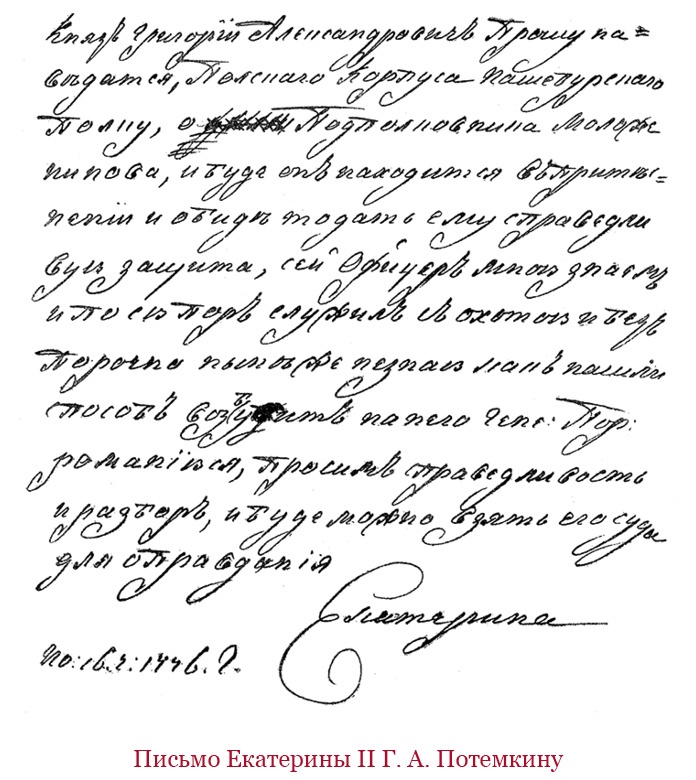 Князь Григорій Александровичъ Прошу на=
вѣдатся, Полскаго Корпуса Кашепурскаго
Полку, о Подполковника Моложе
нинова, и буде онъ находится въ притѣс=
неніи и обидѣ то дать ему справедли
вую защита, сей Офицеръ мною знаемъ
и по сю поръ служилъ съ охотою и безъ
порочна нынѣ же незнаю какъ нашли
способъ возбудить на него Гене: Пор:
романіюса, просимъ праведливость
и разборъ, и буде можно взять его сюда
для оправданія
Екатерина
Но: 16. ч: 1776. г.
Письмо Екатерины II Г. А. Потемкину